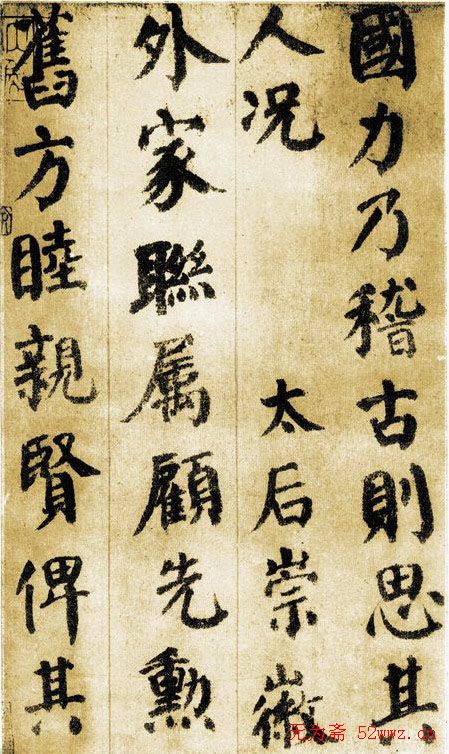 國力乃稽古則思其
人況 太后崇徽
外家聯属顧先勲
舊方睦親賢俾其
无为斋 52wwz.cn